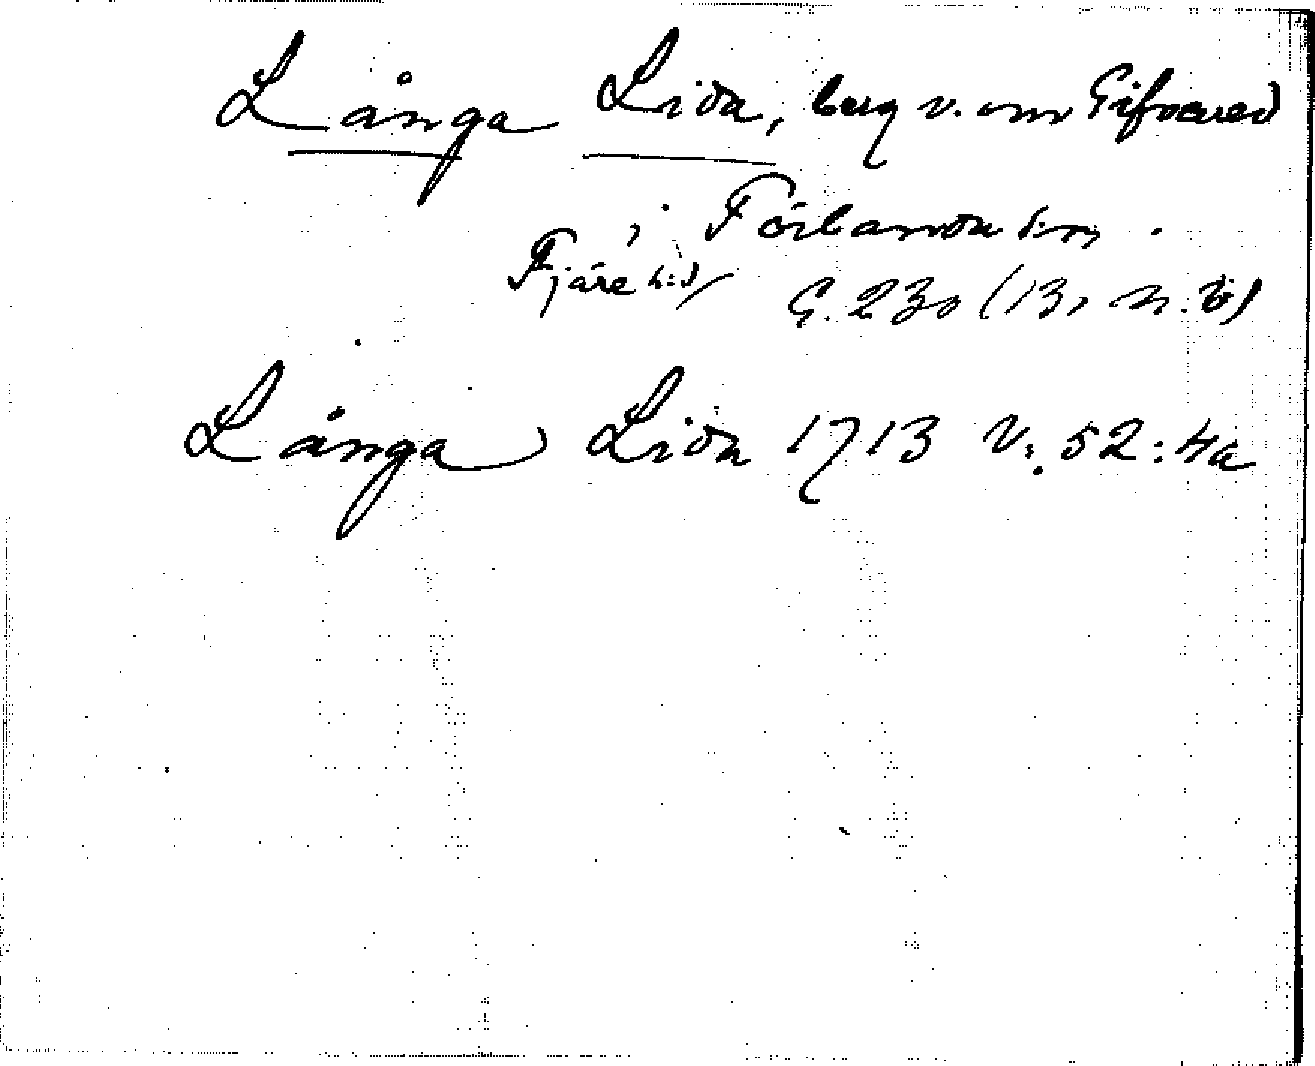 Långa Lida, berg v. om Gifvared
i Förlanda sn.
Fjäre hd G. 230 (13, n. 6)
Långa Lida 1713 V: 52: 4a